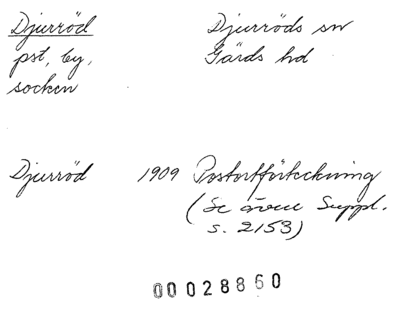 Djurröd Djurröds sn
pst, by, Gärds hd
socken
Djurröd 1909 Postortförteckning
(Se även Suppl.
s. 2153)
00028860